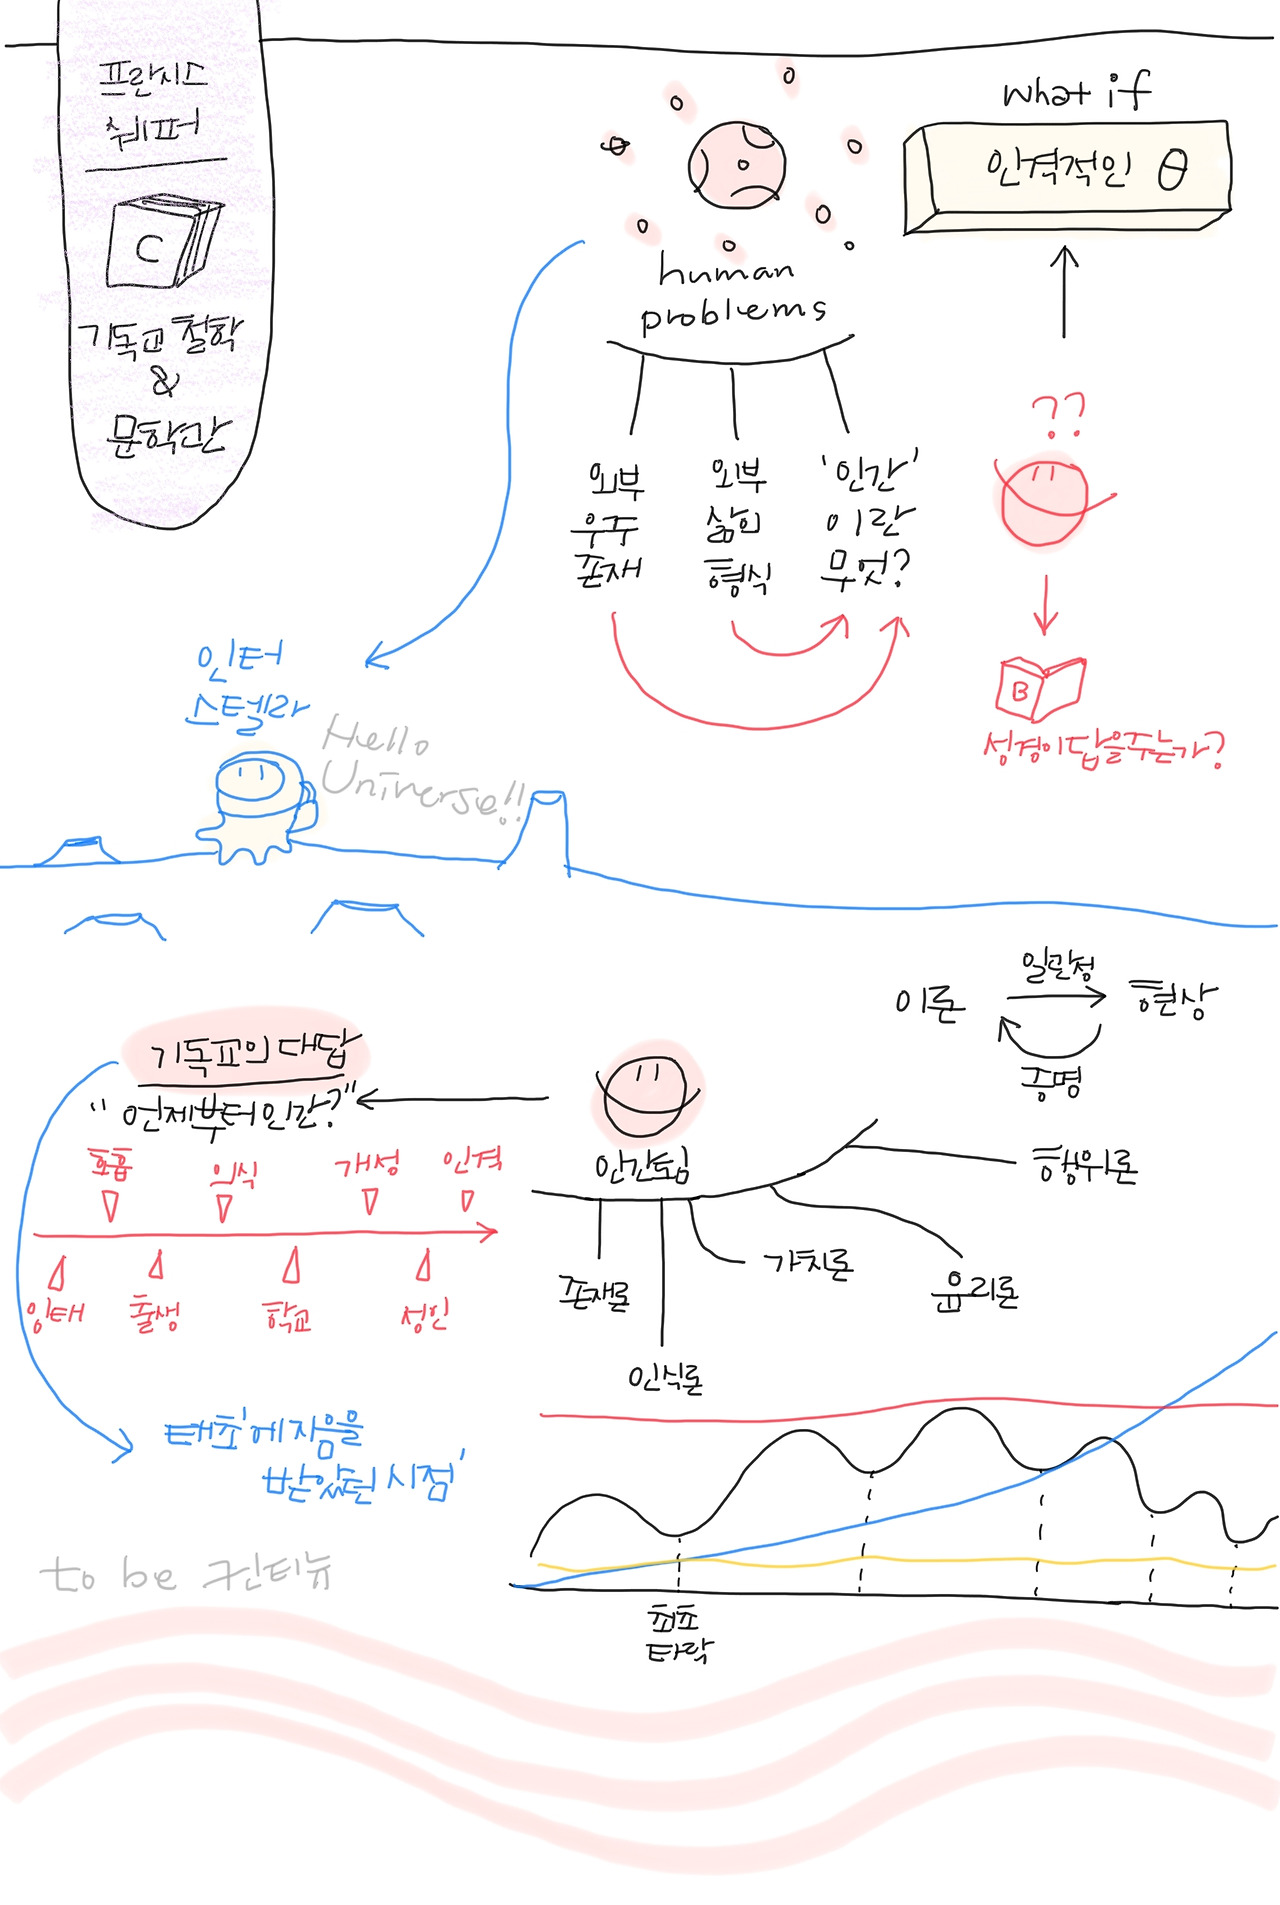 프란시스
쉐퍼
C
기독교 철학
&
문학관
human
problems
외부
우주
존재
외부
삶의
형식
'인간'
이란
무엇?
what if
인격적인 θ
??
B
성경이 답을 주는가?
인터
스텔라
Hello
Universe!!
이론
일관성
현상
증명
기독교의 대답
"언제부터 인간?"
호흡
의식
개성
인격
잉태
출생
학교
성인
태초'에 지음을
받았던 시점'
인간됨
존재론
인식론
가치론
윤리론
행위론
최초
타락
to be 컨티뉴